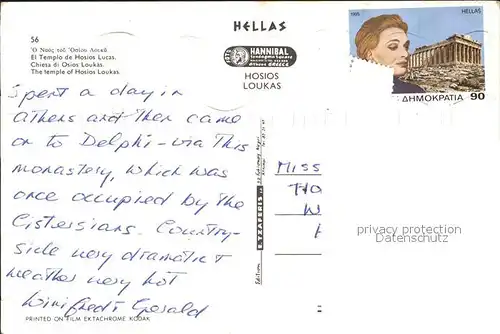 56
Ὁ Ναὸς τοῦ Ὁσίου Λουκᾶ.
El Templo de Hosios Lucas.
Chiesa di Osios Loukas.
The temple of Hosios Loukas.
HELLAS
HANNIBAL
Athens GREECE
HOSIOS
LOUKAS
1995
HELLAS
ΔΗΜΟΚΡΑΤΙΑ 90
Spent a day in
Athens and then came
on to Delphi - via this
monastery, which was
once occupied by the
Cistersians. Country-
side very dramatic &
weather very hot
Winifred & Gerald
PRINTED ON FILM EKTACHROME KODAK
Edition
MISS
HO
W
privacy protection
Datenschutz